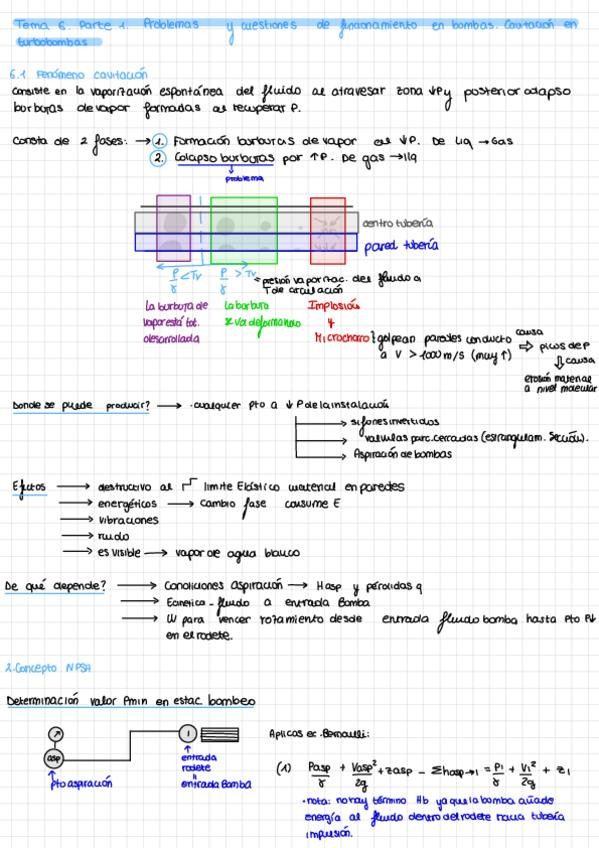 Tema 6. Parte 1. Problemas y cuestiones de funcionamiento en bombas. Cavitación en
turbobombas
6.1 Fenómeno cavitación
Consiste en la vaporización espontánea del fluido al atravesar zona ↓P y posterior colapso
burbujas de vapor formadas al recuperar P.
Consta de 2 fases: → 1. Formación burbujas de vapor al ↓P. De Liq → Gas
2. Colapso burbujas por ↑P. De gas → liq
problema
centro tubería
pared tubería
P/γ < Tv P/γ > Tv ← presión vaporizac. del fluido a
T de circulación
La burbuja de
vapor está tot.
desarrollada
La burbuja
x va deformando
Implosión
y
Microchorro
golpean paredes conducto
a V > 1000 m/s (muy ↑)
causa
⇒ picos de P
⇓ causa
erosión material
a nivel molecular
Donde se puede producir? → · cualquier pto a ↓ P de la instalación
→ sifones invertidos
→ valvulas parc. cerradas (estrangulam. sección).
→ Aspiración de bombas
Efectos → destructivo al límite Elástico material en paredes
→ energéticos → Cambio fase consume E
→ vibraciones
→ ruido
→ es visible → vapor de agua blanco
De qué depende? → Condiciones aspiración → Hasp y pérdidas q
→ Ecinetica - fluido a entrada Bomba
→ W para vencer rozamiento desde entrada fluido bomba hasta Pto P↓
en el rodete.
2. Concepto NPSH
Determinación valor Pmin en estac. bombeo
asp
1
pto aspiración
entrada
rodete
=
entrada Bomba
Aplicas ec. Bernoulli:
(1) Pasp/γ + Vasp²/2g + zasp - Σhasp→1 = P1/γ + V1²/2g + z1
· nota: no hay término Hb ya que la bomba añade
energía al fluido dentro del rodete hacia tubería
impulsión.